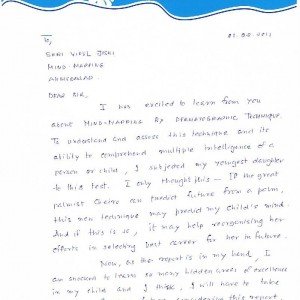 To,
SHRI VIPUL JOSHI
MIND-MAPPING
AHMEDABAD.
DEAR SIR,
I was excited to learn from you
about MIND-MAPPING By DERMATOGRAPHIC Technique.
To understand and assess this technique and its
ability to comprehend multiple intelligence of a
person or child, I subjected my youngest daughter
to this test. I only thought this - IF the great
palmist Cheiro can predict future from a palm,
this new technique may predict my child's mind.
And if this is so, it may help reorganising her
efforts in selecting best career for her in future.
Now, as the report is in my hand, I
am shocked to learn so many hidden areas of excellence
in my child and I think, I will have to take
considering this report.